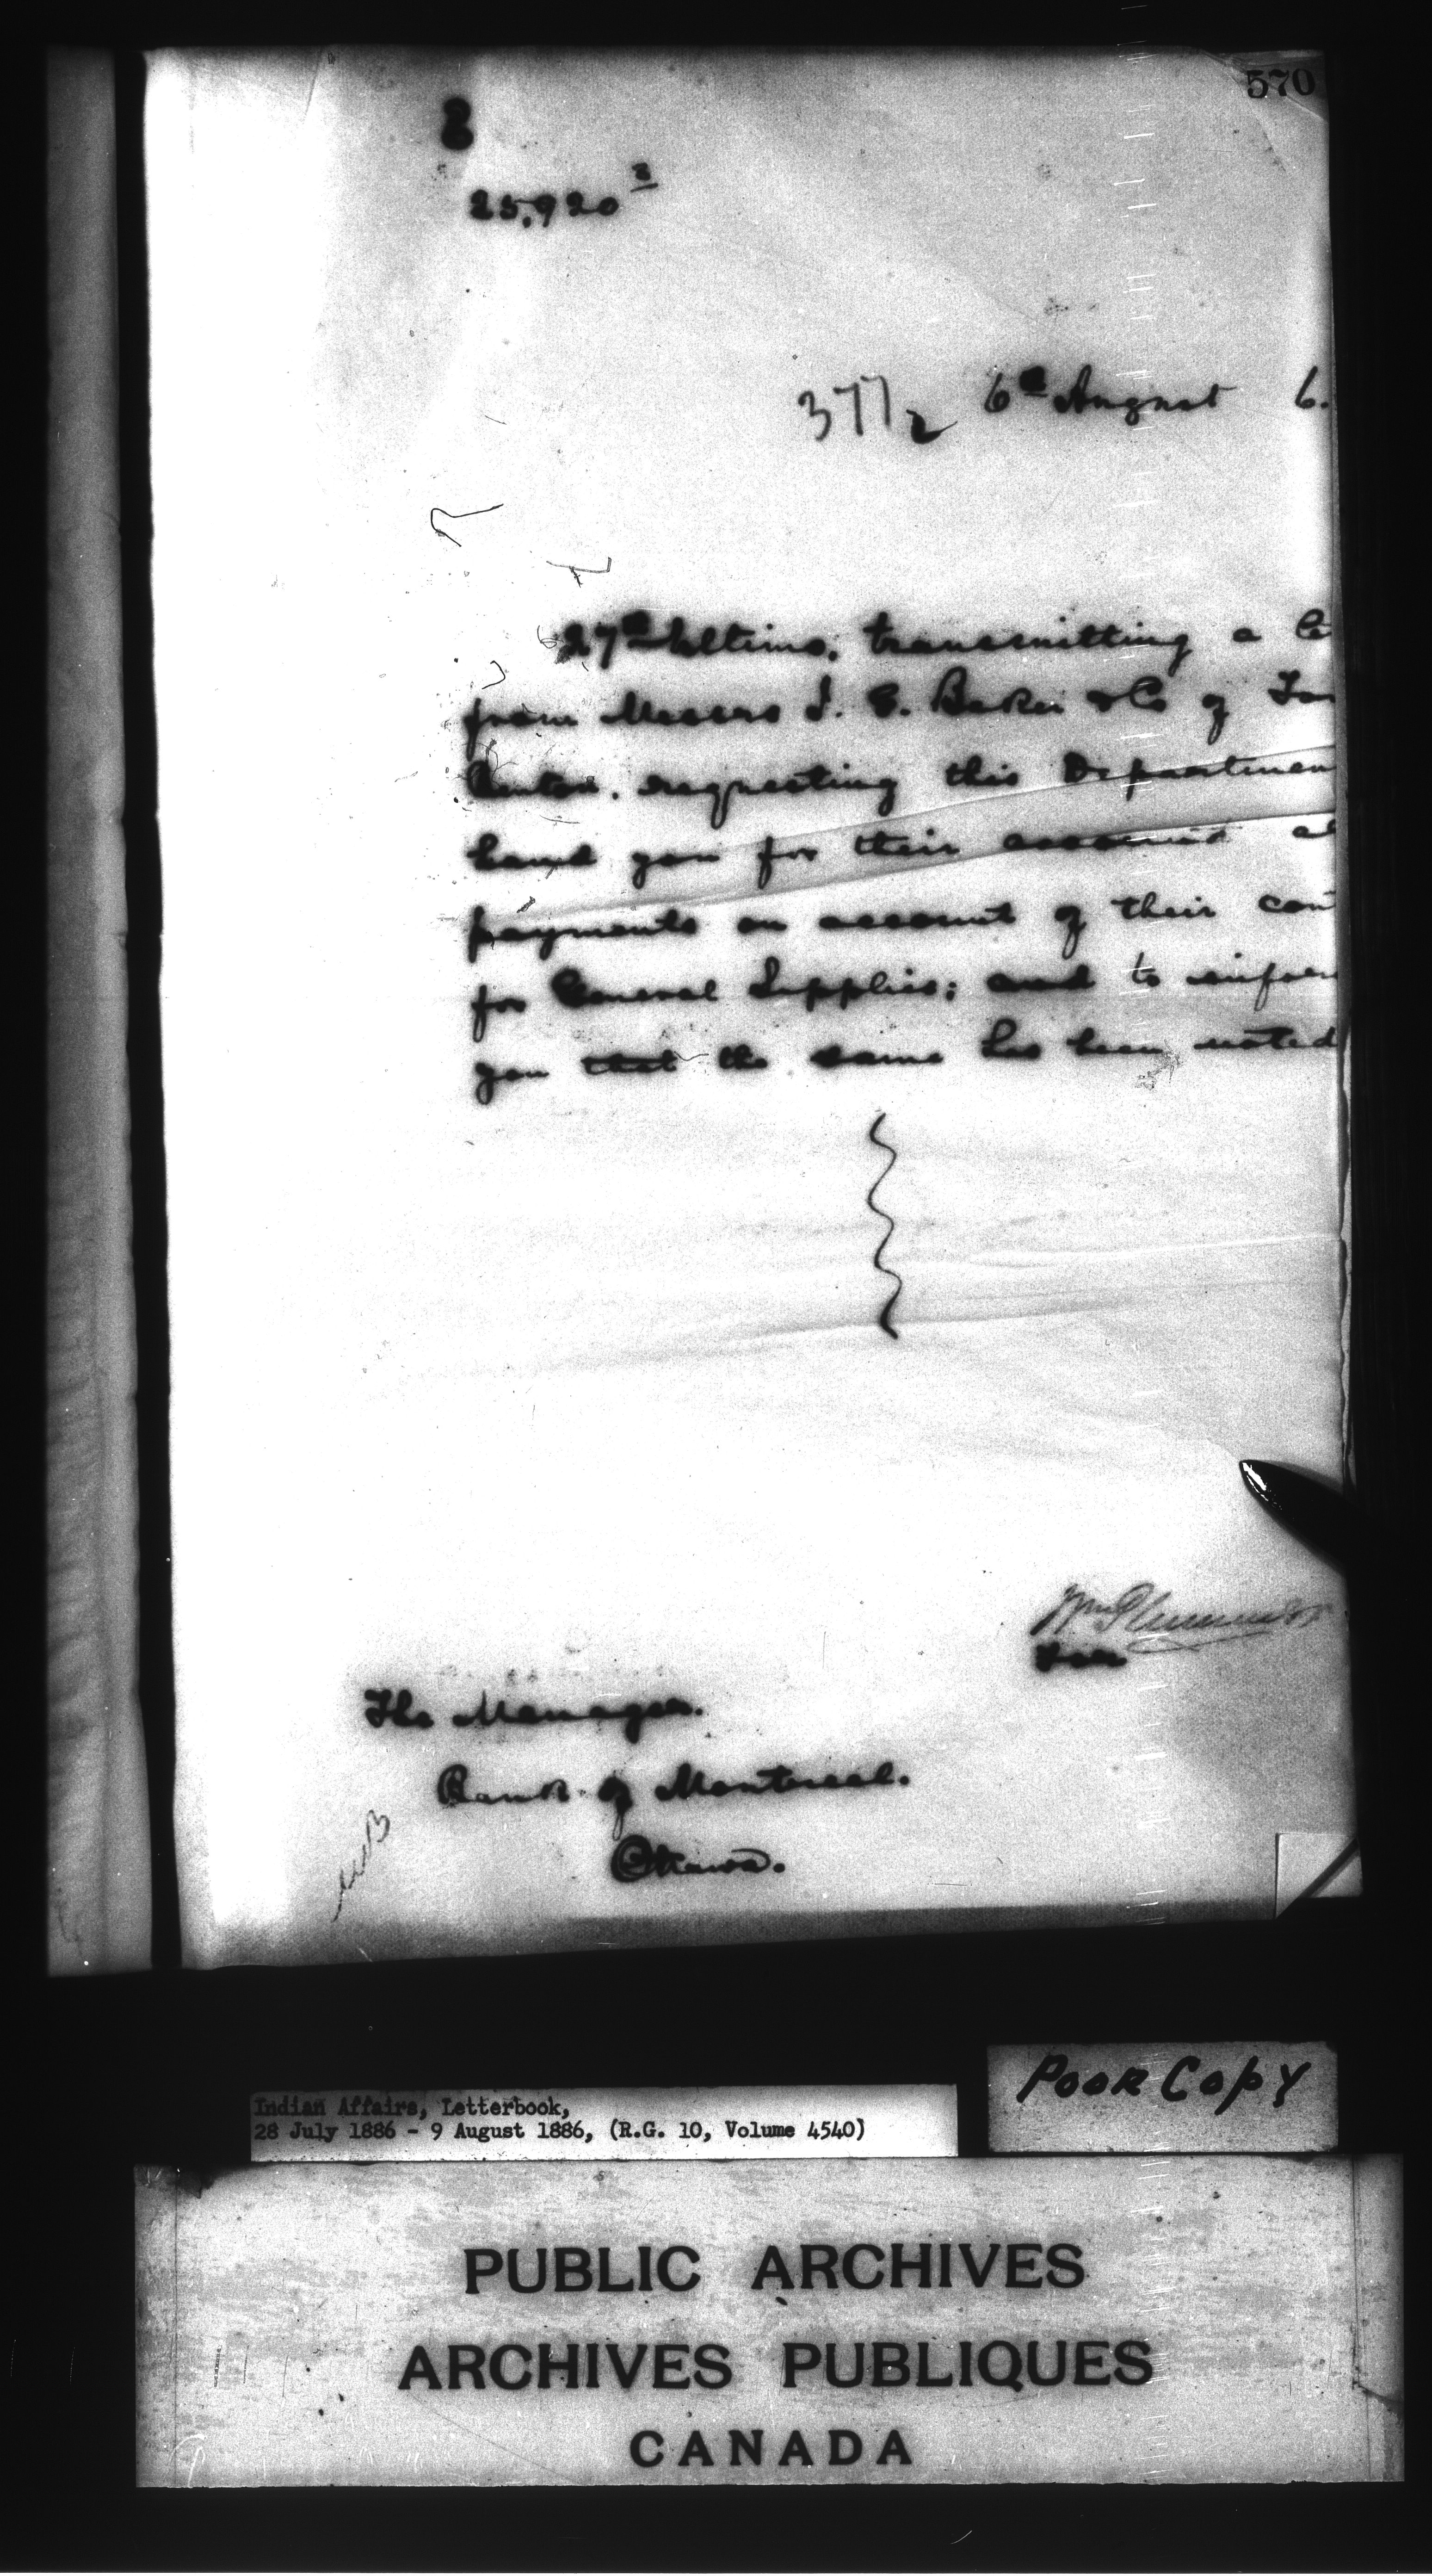 570
25,920 3
3772 6th August 6.
27th Ultimo, transmitting a le
from Messrs I. G. Baker & Co of For
Benton, requesting this Departmen
hand you for their account al
payments on account of their con
for General Supplies; and to inform
you that the same has been noted
for
The Manager.
Bank of Montreal.
Ottawa.
Poor Copy
Indian Affairs, Letterbook,
28 July 1886 - 9 August 1886, (R.G. 10, Volume 4540)
PUBLIC ARCHIVES
ARCHIVES PUBLIQUES
CANADA